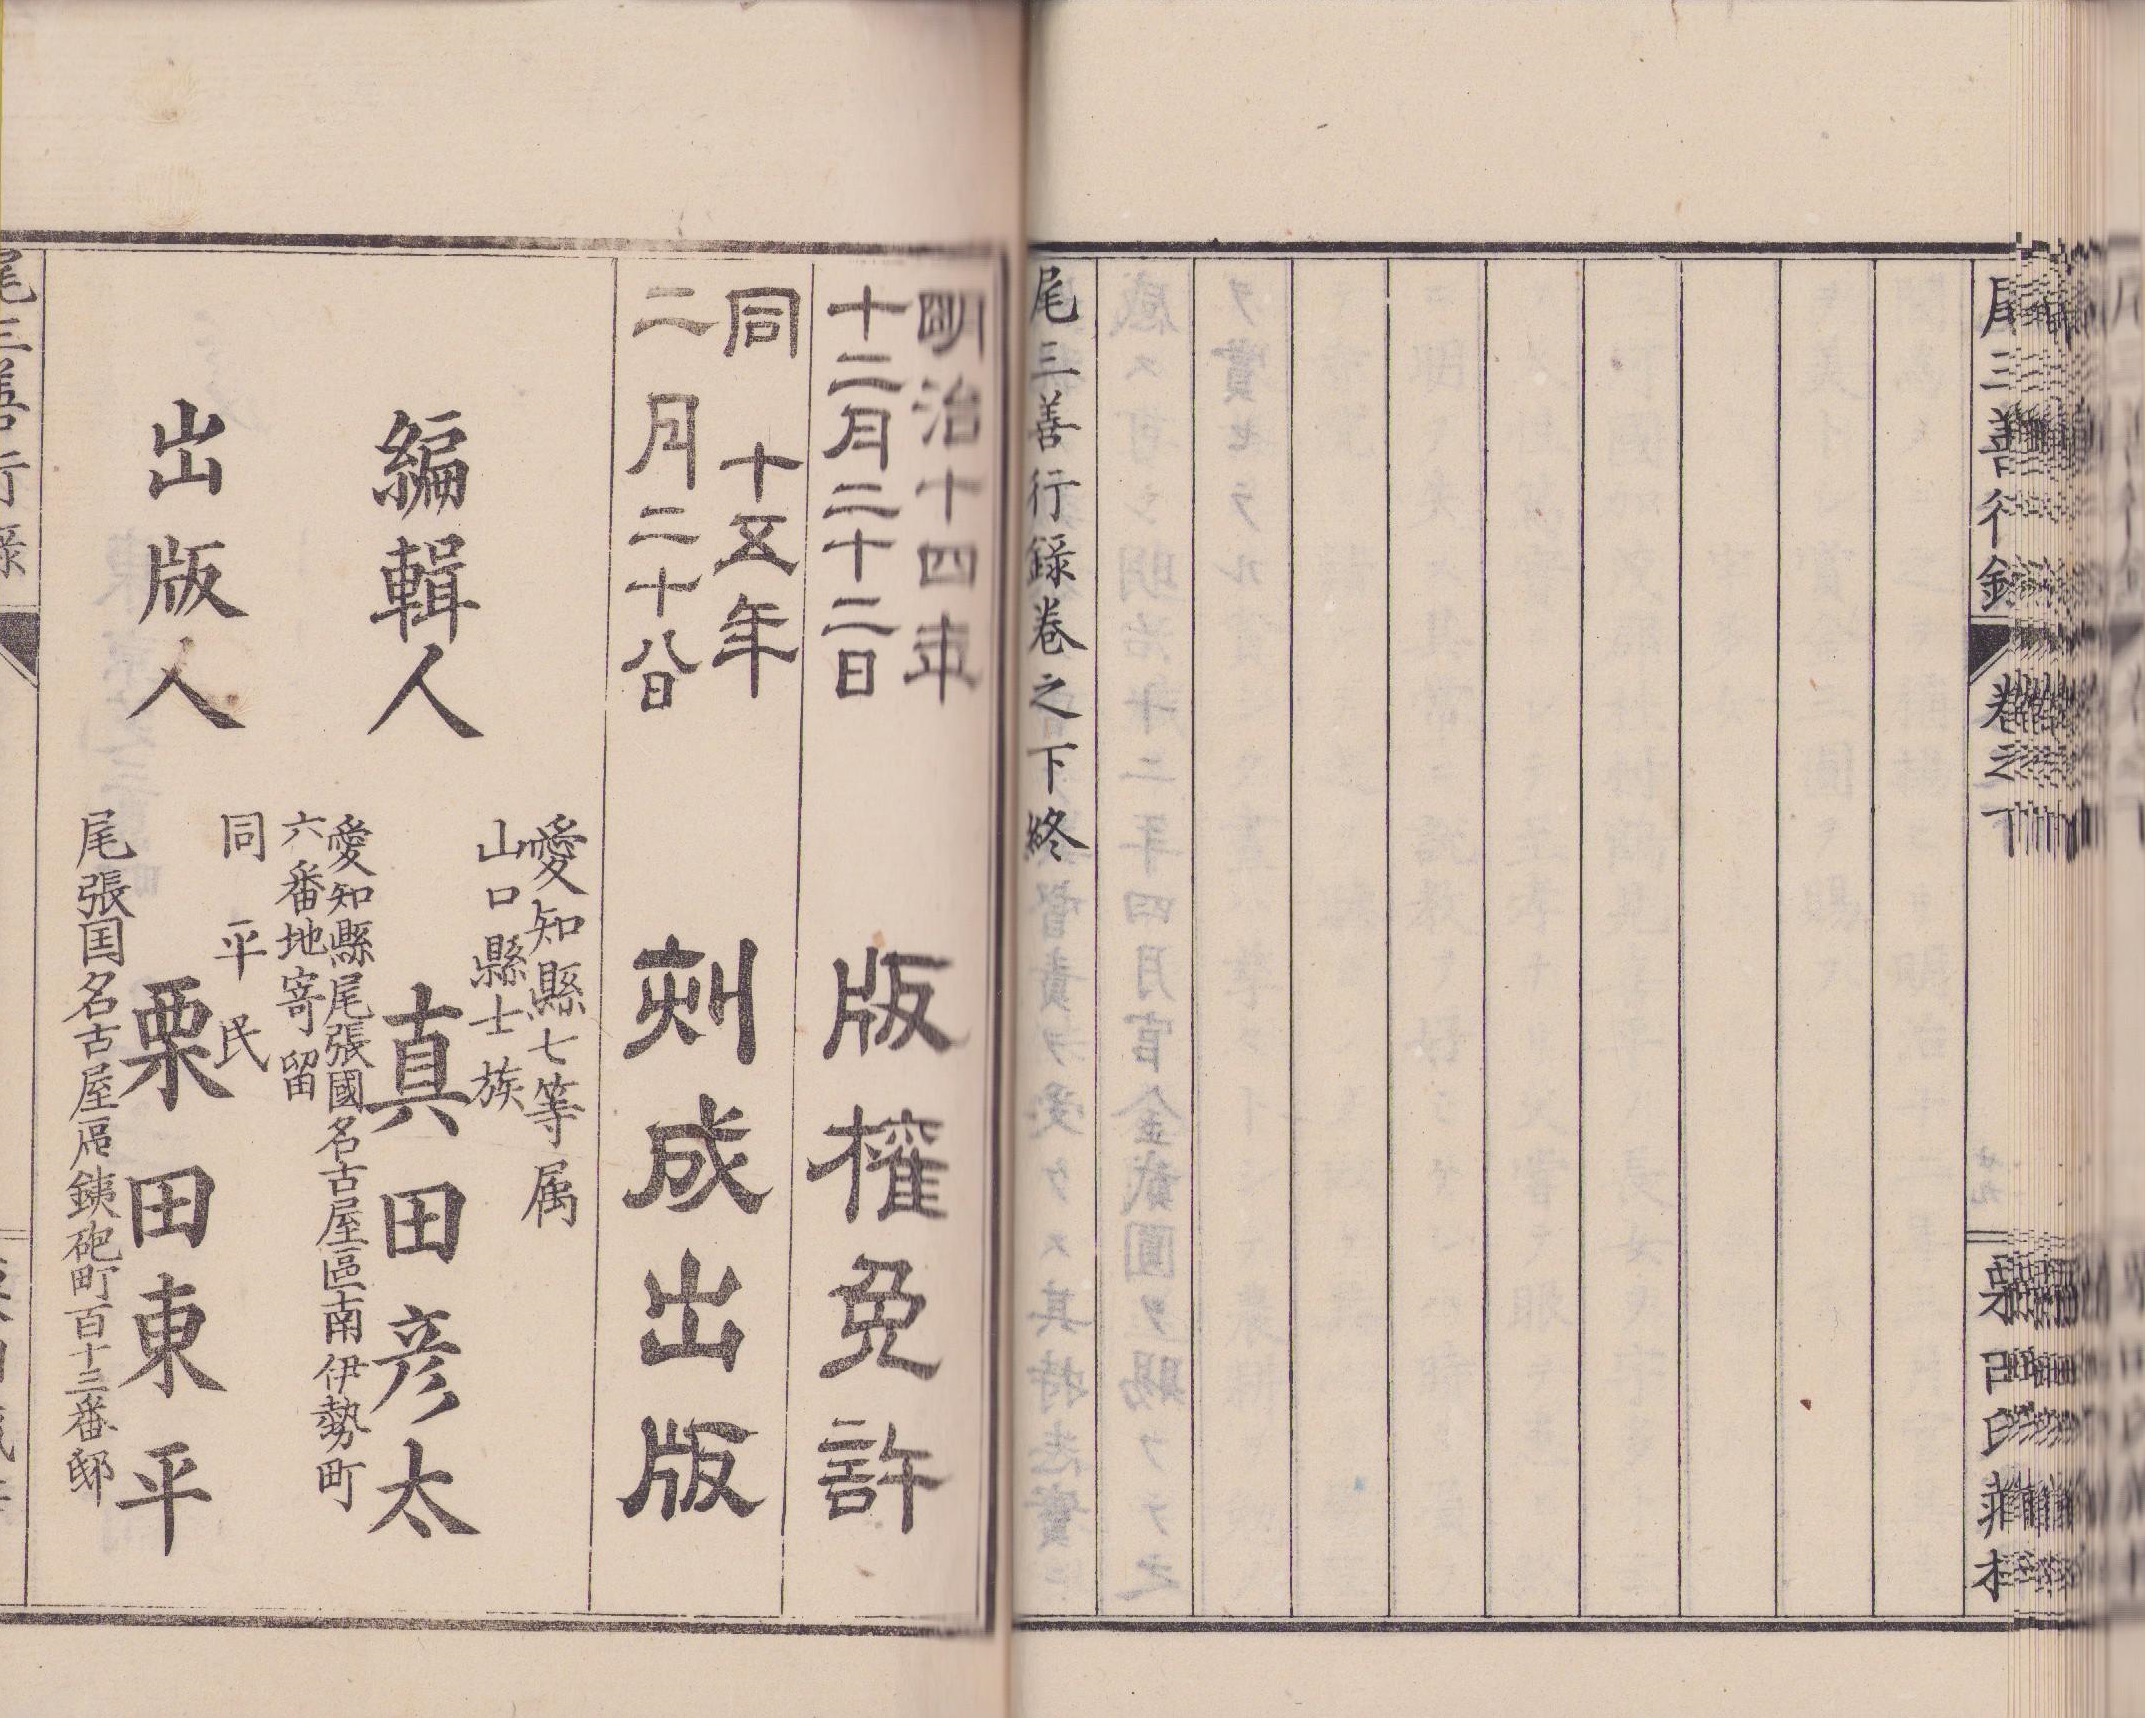 尾三善行錄 卷之下
尾三善行錄卷之下終
明治十四年
十二月二十二日
版權免許
同 十五年
二月二十八日
刻成出版
愛知縣七等属
山口縣士族
編輯人
真田彦太
愛知縣尾張國名古屋區南伊勢町
六番地寄留
同平民
出版人
栗田東平
尾張国名古屋區銕砲町百十三番邸
尾三善行錄